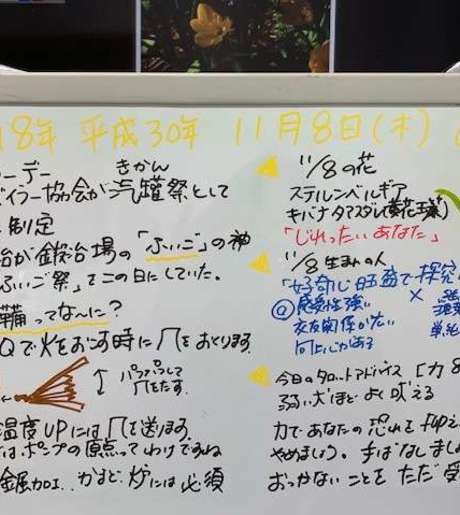 18年 平成30年 11月8日(木)
ーデー
きかん
イラー協会が汽罐祭として
制定
冶が鍛冶場の「ふいご」の神
ふいご祭」をこの日にしていた。
鞴ってな〜に?
Qで火をおこす時に
をおくります。
パフパフして
温度UPには
を送ります。
はポンプの原点ってわけですね
金属加工、かまど、炉には必須
11/8の花
ステルンベルギア
キバナタマスダレ
「じれったいあなた」
11/8生まれの人
「好奇心旺盛で探究
感受性強い
交友関係かたい
向上心がある
×
今日のタロットアドバイス [力8
弱い犬ほどよく吠える
力であなたの恐れを押さえ
やめましょう。手ばなしましょ
おっかないことをただ受